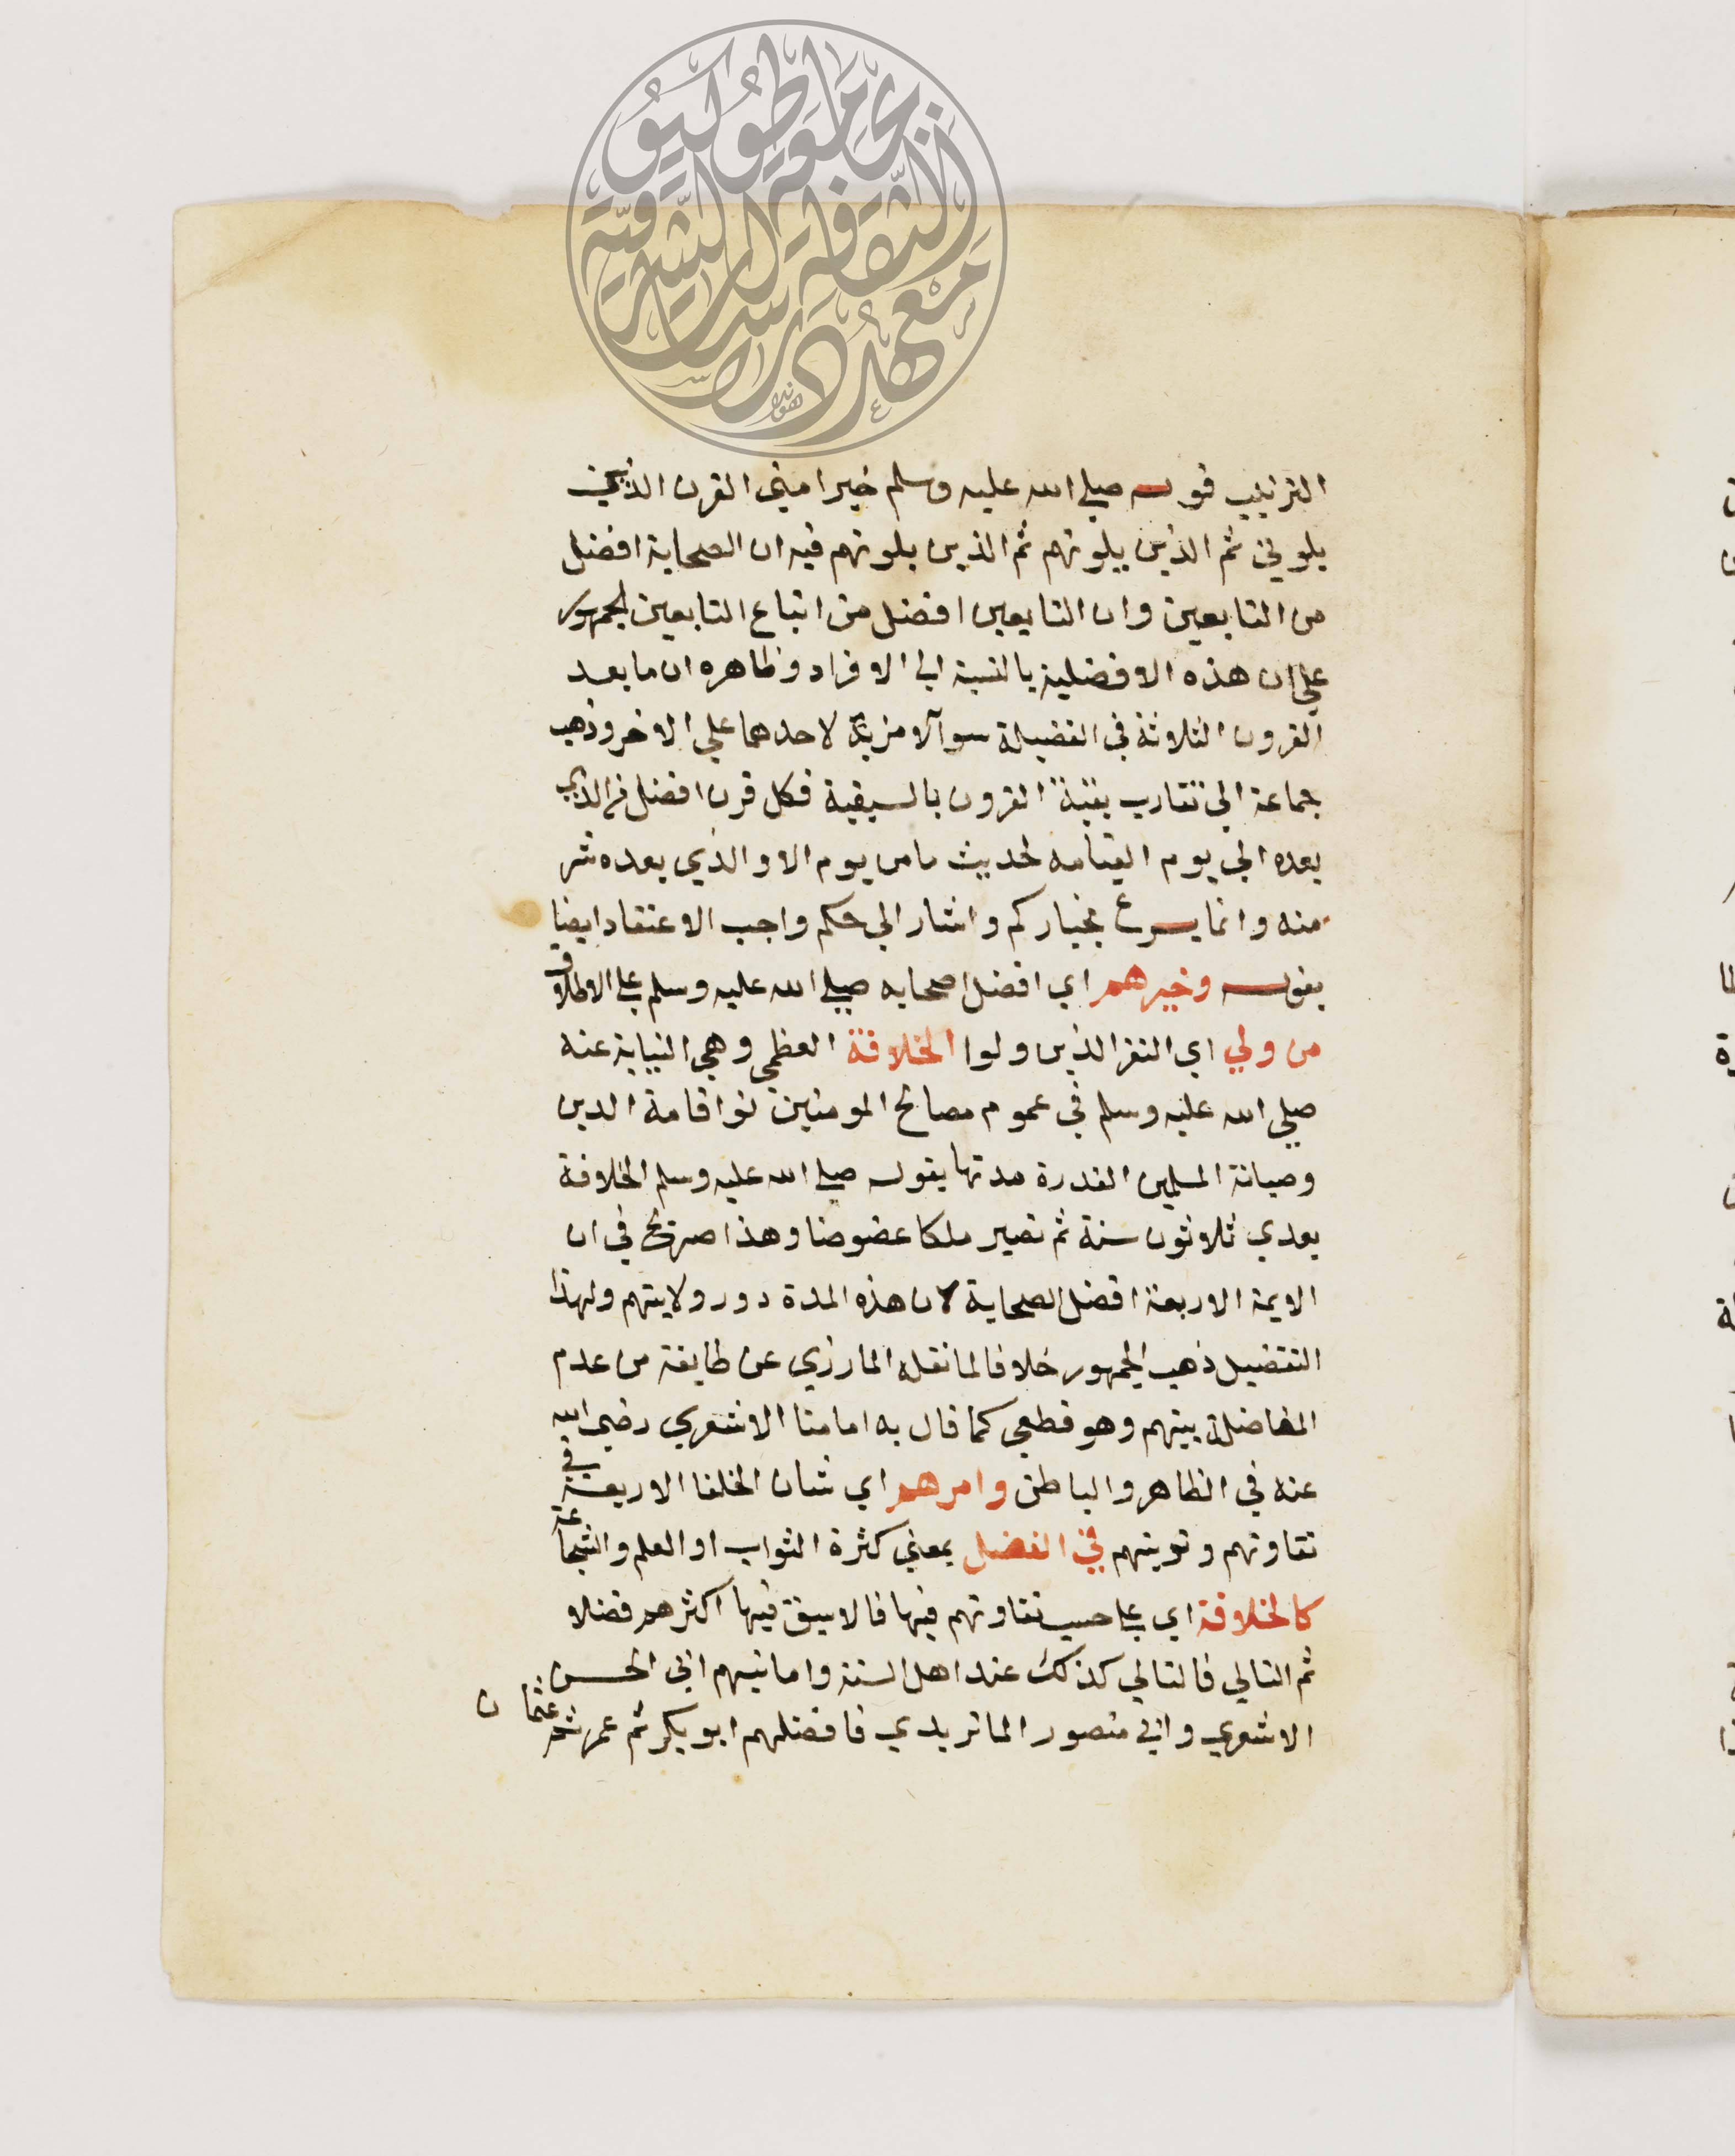 الترتيب قوله صلي الله عليه وسلم خير امتي القرن الذين
يلوني ثم الذين يلونهم ثم الذين يلونهم فيه ان الصحابة افضل
من التابعين وان التابعين افضل من اتباع التابعين الجمهور
علي ان هذه الافضلية بالنسبة الي الافراد وظاهره ان ما بعد
القرون الثلاثة في الفضيلة سوآ لا مزية لاحدهما علي الاخر وذهب
جماعة الي تقارب بقية القرون بالسبقية فكل قرن افضل من الذي
بعده الي يوم القيامه لحديث ما من يوم الا والذي بعده شر
منه وانما يسرع بخياركم واشار الي حكم واجب الاعتقاد ايضا
بقوله وخيرهم اي افضل اصحابه صلي الله عليه وسلم علي الاطلاق
من ولي اي النفر الذين ولوا الخلافة العظمي وهي النيابة عنه
صلي الله عليه وسلم في عموم مصالح المومنين نوا قامة الدين
وصيانة المسلمين القدرة مدتها بقوله صلي الله عليه وسلم الخلافة
بعدي ثلاثون سنة ثم تصير ملكا عضوضا وهذا صريح في ان
الايمة الاربعة افضل الصحابة لان هذه المدة دور ولايتهم ولهذا
التفضيل ذهب الجمهور خلافا لما نقله المازري عن طايفة من عدم
المفاضلة بينهم وهو قطعي كما قال به امامنا الاشعري رضي الله
عنه في الظاهر والباطن وامرهم اي شان الخلفا الاربعة في
تفاوتهم و في الفضل بمعني كثرة الثواب او العلم والشجاعة
كالخلافة اي علي حسب تفاوتهم فيها فالاسبق فيها اكثرهم فضلا
ثم التالي فالتالي كذلك عند اهل السنة واماتيهم ابي الحسن
الاشعري وابي منصور الماتريدي فافضلهم ابو بكر ثم عمر ثم عثمان